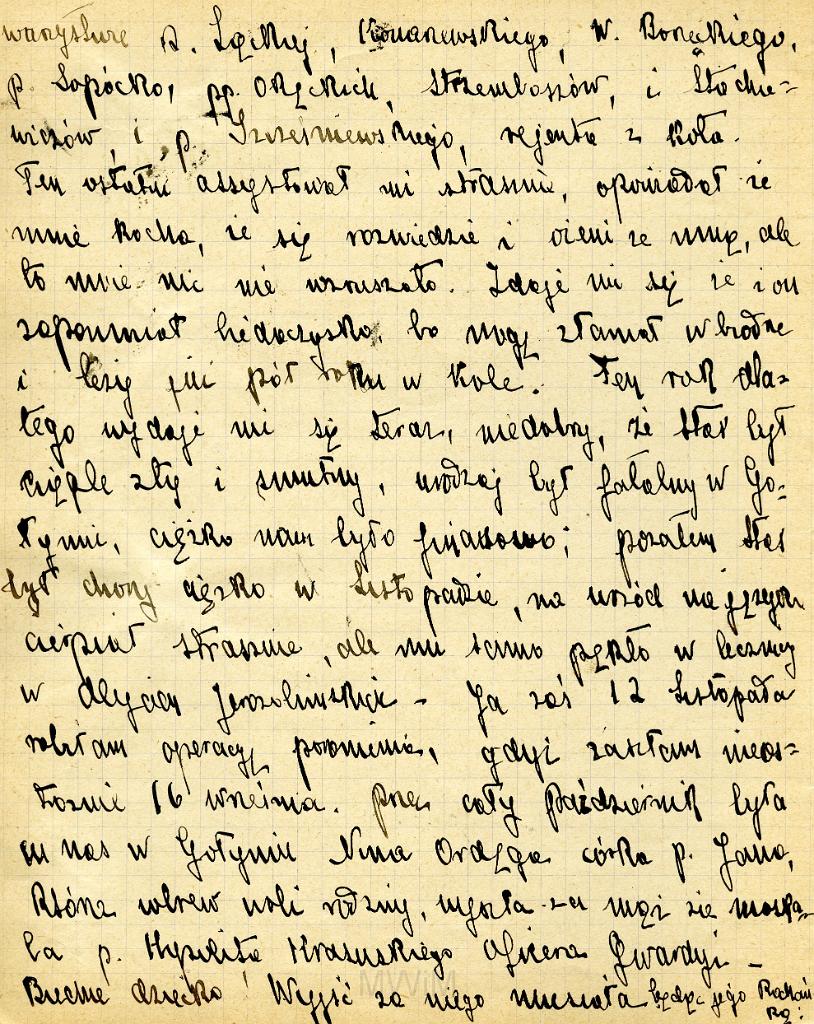 p. Łąckiej, Konarzewskiego, W. Boneckiego,
p. Sopócko, pp. Okęckich, Strzemboszów, i Stochie=
wiczów, i p. Szcześniewskiego, rejenta z Koła.
Ten ostatni assystował mi strasznie, opowiadał że
mnie kocha, że się rozwiedzie i ożeni ze mną, ale
to mnie nic nie wzruszało. Zdaje mi się że i on
zapomniał biedaczysko, bo nogę złamał w biodrze
i leży już pół roku w Kole. Ten rok dla=
tego wydaje mi się teraz, niedobry, że Staś był
ciągle zły i smutny, urodzaj był fatalny w Go=
łyniu, ciężko nam było finansowo; pozatem Staś
był chory ciężko w Listopadzie, na wrzód na języku
cierpiał strasznie, ale mu samo pękło w lecznicy
w Alejach Jerozolimskich – Ja zaś 12 Listopada
robiłam operację poronienia, gdyż zaszłam nieos=
trożnie 16 września. Przez cały Październik była
u nas w Gołyniu Nina Ordęga córka p. Jana,
Która wbrew woli rodziny, wyszła za mąż za moska=
la p. Hypolita Krasuskiego oficera Gwardyi –
Biedne dziecko! Wyjść za niego musiała będąc jego Kochan
ką!
MWiM